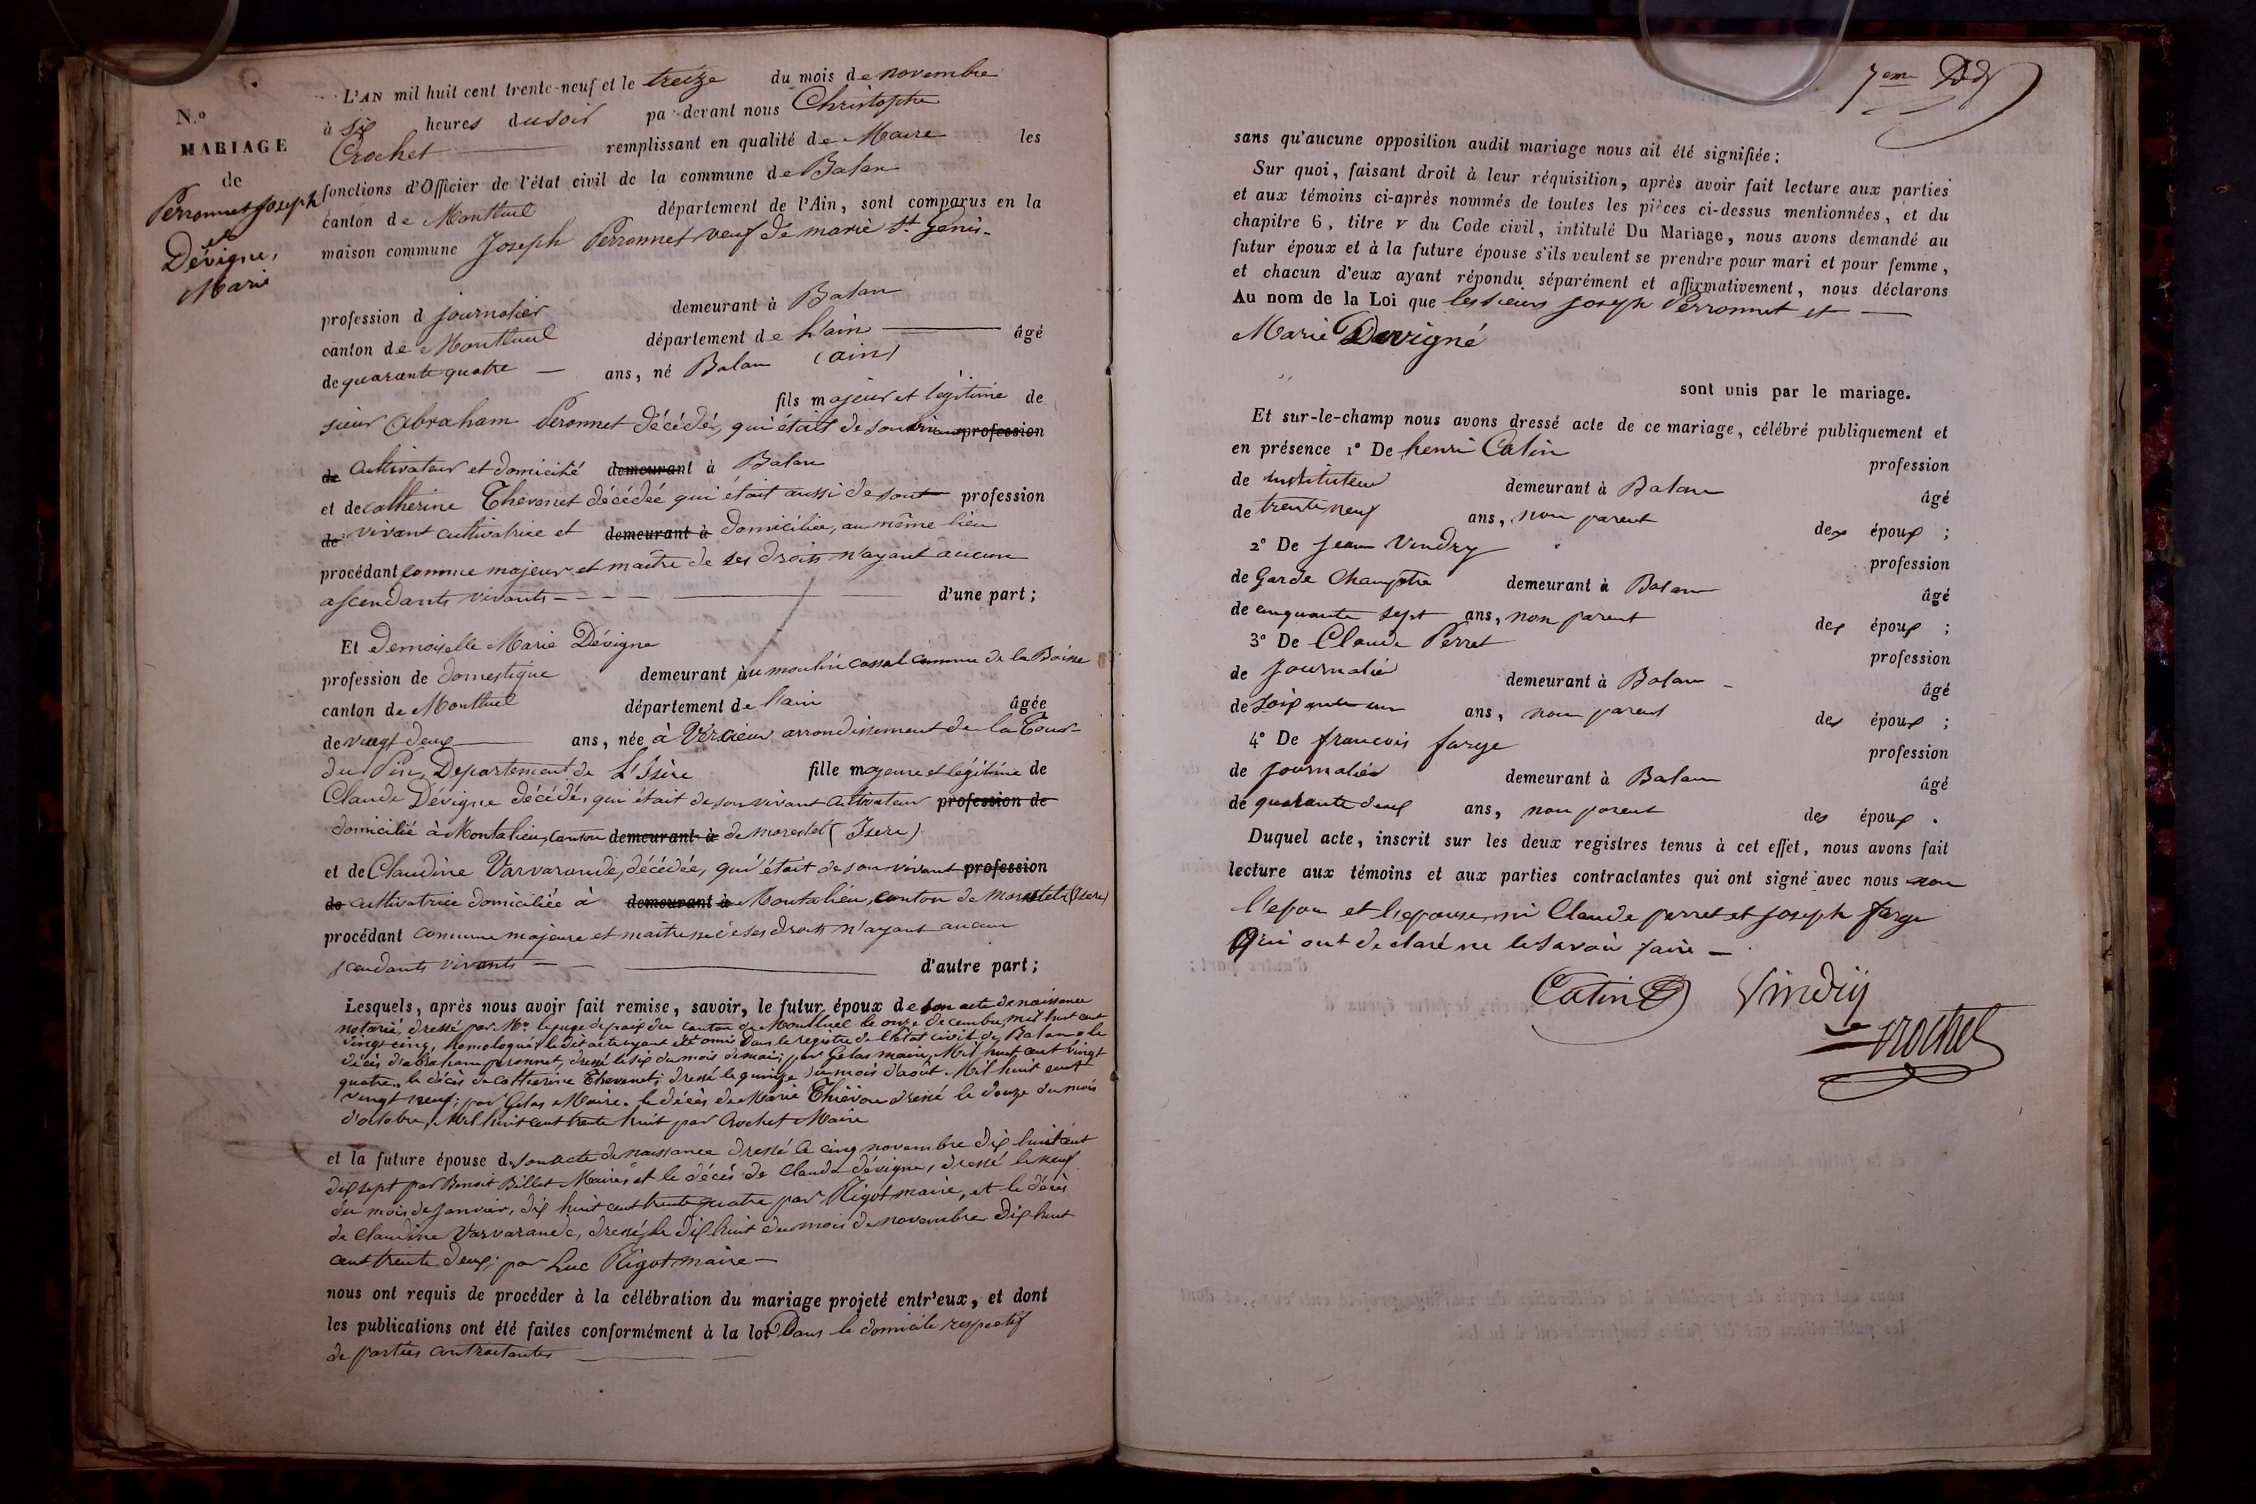 N.º
MARIAGE
de
Perronnet Joseph
et
Dévigne,
Marie
L'AN mil huit cent trente-neuf et le treize du mois de novembre
à six heures du soir pa-devant nous Christophe
Crochet remplissant en qualité de Maire les
fonctions d'Officier de l'état civil de la commune de Balan
canton de Montluel département de l'Ain, sont comparus en la
maison commune Joseph Perronnet veuf de marie St. Genis-
profession d journalier demeurant à Balan
canton de Montluel département de L'ain âgé
de quarante quatre ans, né Balan (ain)
fils majeur et légitime de
sieur Abraham Peronnet décédé, qui était de son vivant profession
de Cultivateur et domicilié demeurant à Balan
et de catherine Thevenet décédée qui était aussi de sont profession
de vivant cultivatrice et demeurant à domiciliée, au même lieu
procédant comme majeur et maitre de ses droits n'ayant aucun
ascendants vivants - - - - d'une part ;
Et demoiselle Marie Dévigne
profession de domestique demeurant à u moulin cassal commune de la Boisse
canton de Montluel département de l'ain âgée
de vingt deux ans, née à Vercieu arrondissement de la Tour-
du Pin, Departement de L'Isère fille majeure et légitime de
Claude Dévigne décédé, qui était de son vivant cultivateur profession de
domicilié à Montalieu, canton demeurant à de morestel (Isere)
et de Claudine Varvarande, décédée, qui était de son vivant profession
de cultivatrice domiciliée à demeurant à Montalieu, canton de morestel (Isere)
procédant comme majeure et maitresse de ses droits n'ayant aucun
scendants vivants - d'autre part ;
Lesquels, après nous avoir fait remise, savoir, le futur époux de son acte de naissance
notarié, dressé par Mr. le juge de paix du canton de Montluel le onze décembre, mil huit cent
vingt cinq, homologué; le dit acte ayant été omis dans le registre de l'état civil de Balan, le
décès d'abraham peronnet, dressé le six du mois de mai; par Gelas maire, Mil huit cent vingt
quatre. le décès de catherine Thevenet; dressé le quinze du mois d'août Mil huit cent
vingt neuf; par Gelas Maire. le décès de Marie dressé le douze du mois
d'octobre, Mil huit cent trente huit par Crochet Maire
et la future épouse de son acte de naissance dressé le cinq novembre dix huit cent
dix sept par Benoit Billet Maire; et le décès de Claude dévigne, dressé le neuf
du mois de Janvier, dix huit cent trente quatre par Rigot maire, et le décès
de Claudine Varvarande, dressé, le dix huit du mois de novembre dix huit
cent trente deux; par Luc Rigot maire -
nous ont requis de procéder à la célébration du mariage projeté entr'eux, et dont
les publications ont été faites conformément à la loi Dans le domicile respectif
de parties contractantes
7eme
sans qu'aucune opposition audit mariage nous ait été signifiée ;
Sur quoi, faisant droit à leur réquisition, après avoir fait lecture aux parties
et aux témoins ci-après nommés de toutes les pièces ci-dessus mentionnées, et du
chapitre 6, titre V du Code civil, intitulé Du Mariage, nous avons demandé au
futur époux et à la future épouse s'ils veulent se prendre pour mari et pour femme,
et chacun d'eux ayant répondu séparément et affirmativement, nous déclarons
Au nom de la Loi que les sieurs Joseph Perronnet et
Marie Devigné
sont unis par le mariage.
Et sur-le-champ nous avons dressé acte de ce mariage, célébré publiquement et
en présence 1º De henri Catin profession
de instituteur demeurant à Balan âgé
de trente neuf ans, non parent des époux ;
2º De Jean Vindry profession
de Garde Champetre demeurant à Balan âgé
de cinquante sept ans, non parent des époux ;
3º De Claude Perret profession
de Journalié demeurant à Balan - âgé
de soixante un ans, non parent des époux ;
4º De francois farge profession
de journaliér demeurant à Balan âgé
de quarante deux ans, non parent des époux .
Duquel acte, inscrit sur les deux registres tenus à cet effet, nous avons fait
lecture aux témoins et aux parties contractantes qui ont signé avec nous non
l'epou et l'epouse, ni Claude perret et Joseph farge
Qui ont declaré ne le savoir faire -
Catin Vindry
Crochet